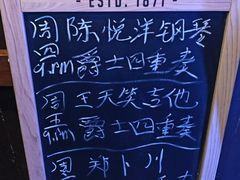 ESTD. 1877
周四 陈悦洋钢琴
9pm 爵士四重奏
周五 王天笑吉他
9pm 爵士四重奏
周 郑卜川